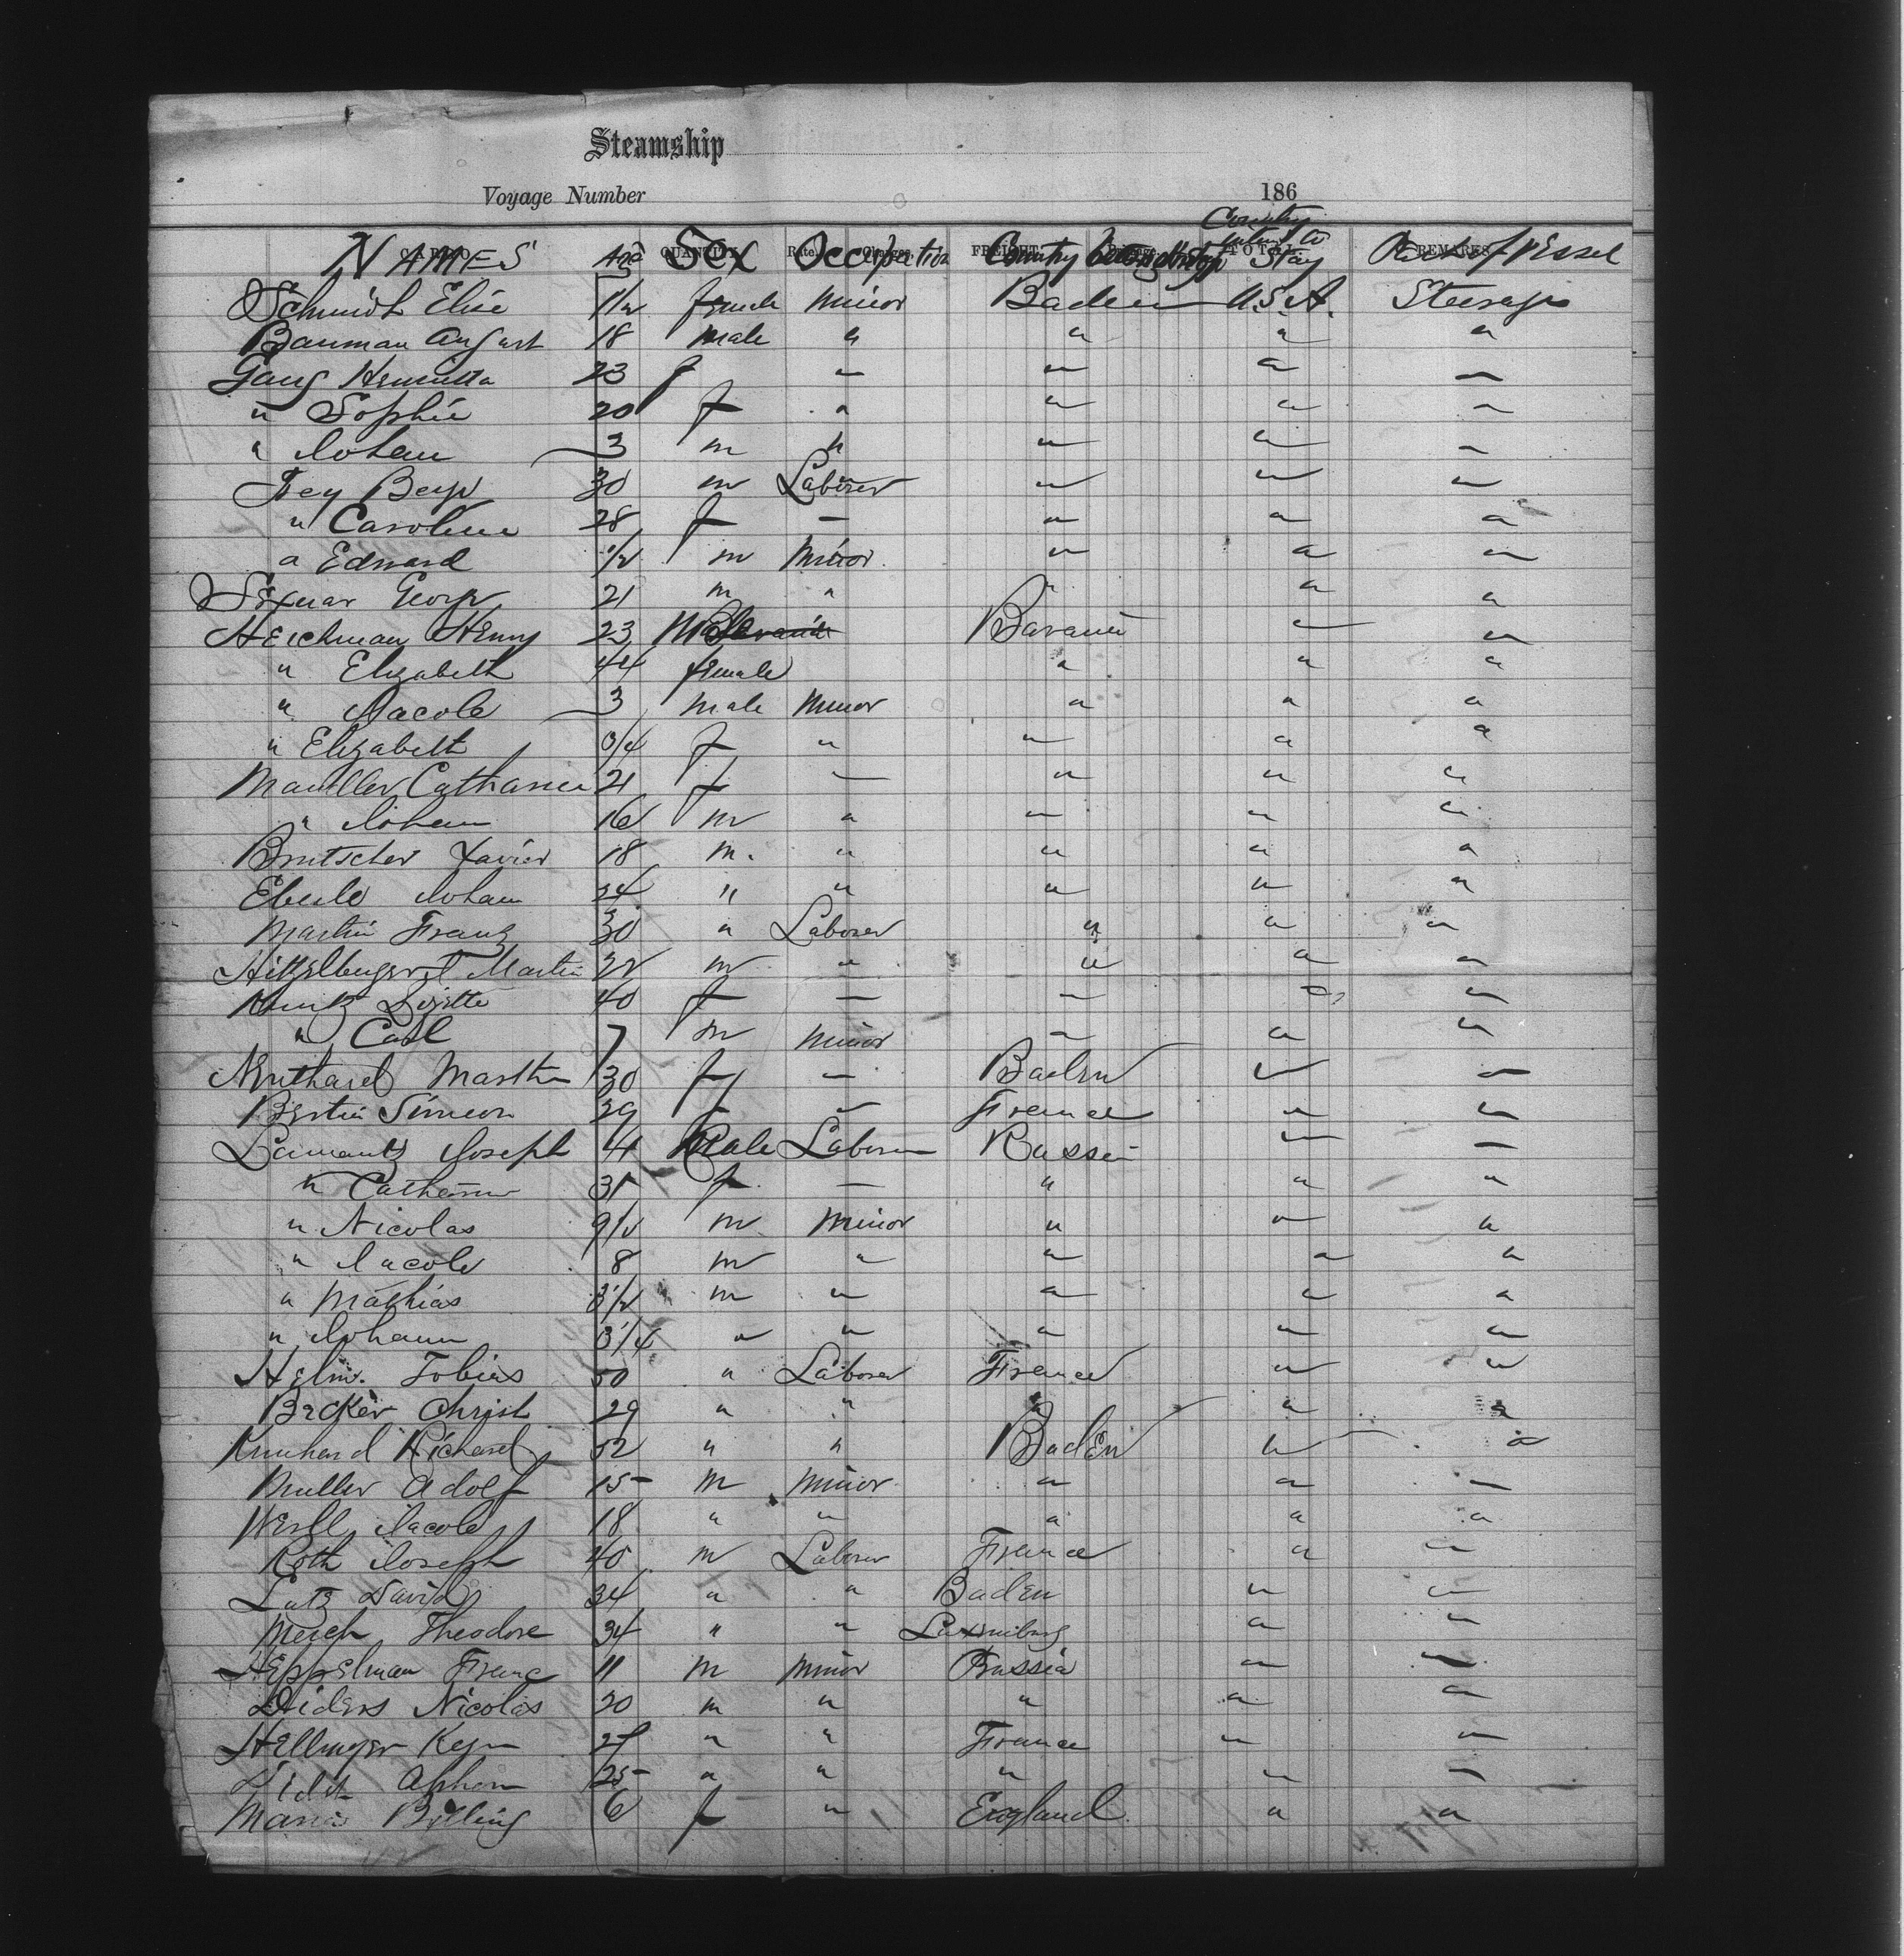 Steamship
Voyage Number 186
NAMES Age Sex Occupation Country Country intend to Stay Part of Vessel
Schmidt Elise 1 1/2 female Minor Baden U.S.A. Steerage
Bauman August 18 Male " " " "
Gang Henrietta 23 f " " " "
" Sophie 20 f " " " "
" Johan 3 m " " " "
Fey 30 m Laborer " " "
" Caroline 28 f " " " "
" Edward 1/2 m Minor " " "
Georg 21 m " " " "
Heichman Henry 23 Male Bavaria " "
" Elizabeth 44 female " " "
" Jacob 3 male Minor " " "
" Elizabeth 3/4 f " " " "
Mauller Catharine 21 f " " " "
" Johan 16 m " " " "
Brutscher Xavier 18 m. " " " "
Eberle Johan 24 " " " " "
Martin Franz 30 " Laborer " " "
Martin 22 m " " " "
Kuntz Lizette 40 f " " " "
" Carl 7 m Minor " " "
Martha 30 f " Baden " "
Bertin Simeon 39 f " France " "
Joseph 41 Male Laborer Russia " "
" Catherine 31 f " " " "
" Nicolas 9 1/2 m Minor " " "
" Jacob 8 m " " " "
" Mathias 3 1/2 m " " " "
" Johann 3/4 " " " " "
Helm. Tobias 50 " Laborer France " "
Becker Christ 29 " " " " "
Richard 52 " " Baden " "
Muller Adolf 15 M Minor " " "
Jacob 18 " " " " "
Roth Joseph 40 m Laborer France " "
Lutz David 34 " " Baden " "
Theodore 34 " " Luxemburg " "
Heppelman Franc 11 M Minor Prussia " "
Diders Nicolas 20 m " " " "
Hellinger 27 " " France " "
25 " " " " "
Maria Billing 6 f " England " "